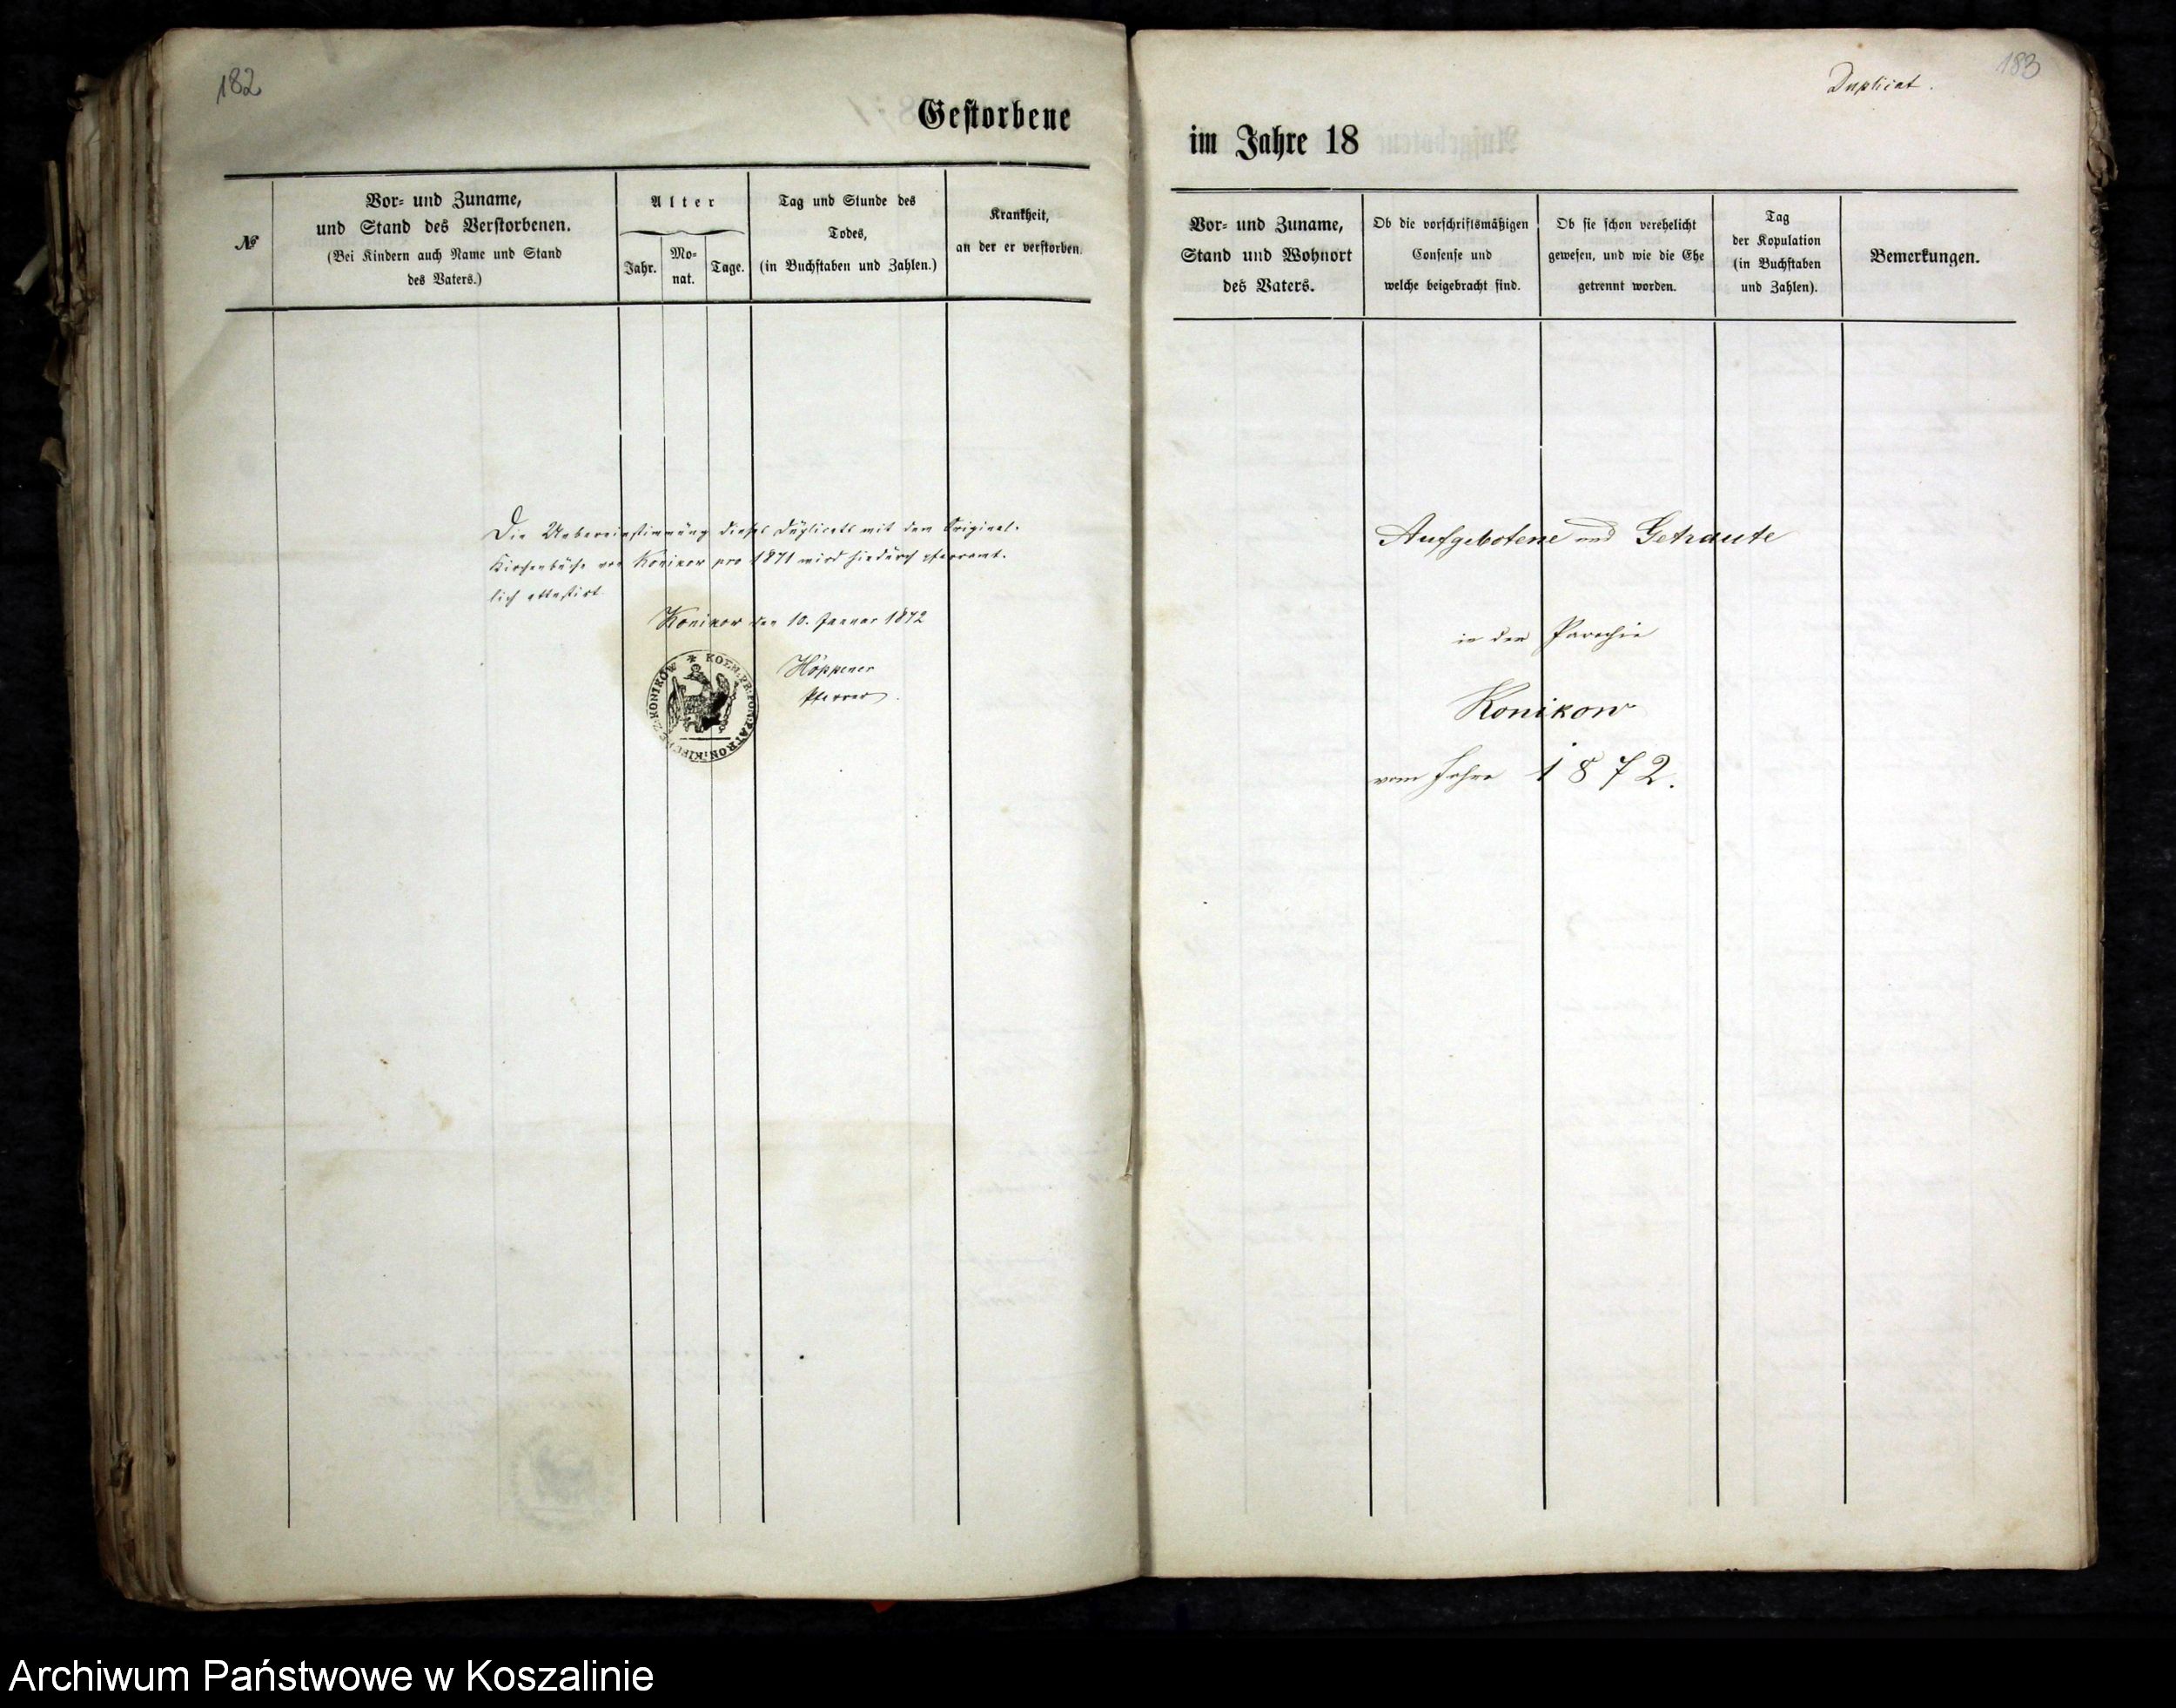 182
Gestorbene
№
Vor- und Zuname,
und Stand des Verstorbenen.
(Bei Kindern auch Name und Stand
des Vaters.)
Alter
Jahr.
Mo-
nat.
Tage.
Tag und Stunde des
Todes,
(in Buchstaben und Zahlen.)
Krankheit,
an der er verstorben.
Die Uebereinstimmung dieses Duplicats mit dem Original-
Kirchenbuche von Konikow pro 1871 wird hiedurch pfarramt-
lich attestirt.
Konikow den 10. Januar 1872
Höppener
Pfarrer.
183
Duplicat.
im Jahre 18
Vor- und Zuname,
Stand und Wohnort
des Vaters.
Ob die vorschriftsmäßigen
Consense und
welche beigebracht sind.
Ob sie schon verehelicht
gewesen, und wie die Ehe
getrennt worden.
Tag
der Kopulation
(in Buchstaben
und Zahlen).
Bemerkungen.
Aufgebotene und Getraute
in der Parochie
Konikow
vom Jahre 1872.
Archiwum Państwowe w Koszalinie